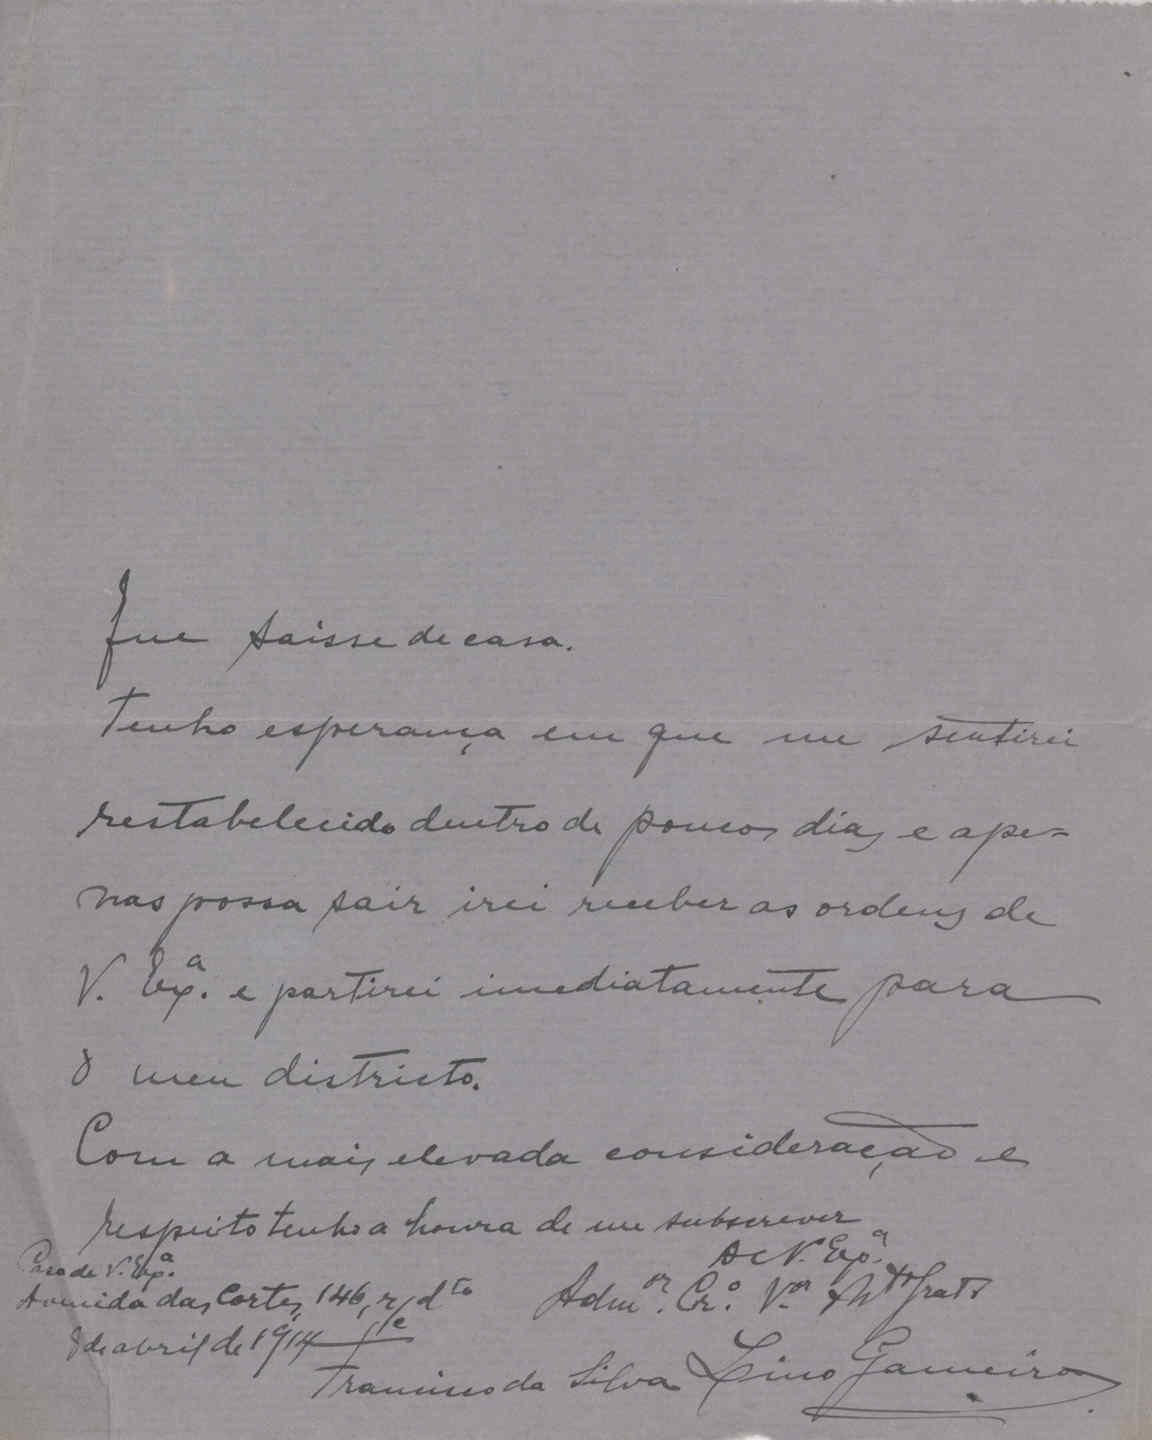 que saisse de casa.
Tenho esperança em que me sentirei
restabelecido dentro de poucos dias e ape=
nas possa sair irei receber as ordens de
V. Exª. e partirei imediatamente para
o meu districto.
Com a mais elevada consideração e
respeito tenho a honra de me subscrever
De V. Exª.
Admor. Cr.º Vor. e Mto Grato
Casa de V. Exª.
Avenida das Cortes, 146, r/c dto
8 de abril de 1914
Francisco da Silva Lino Gameiro